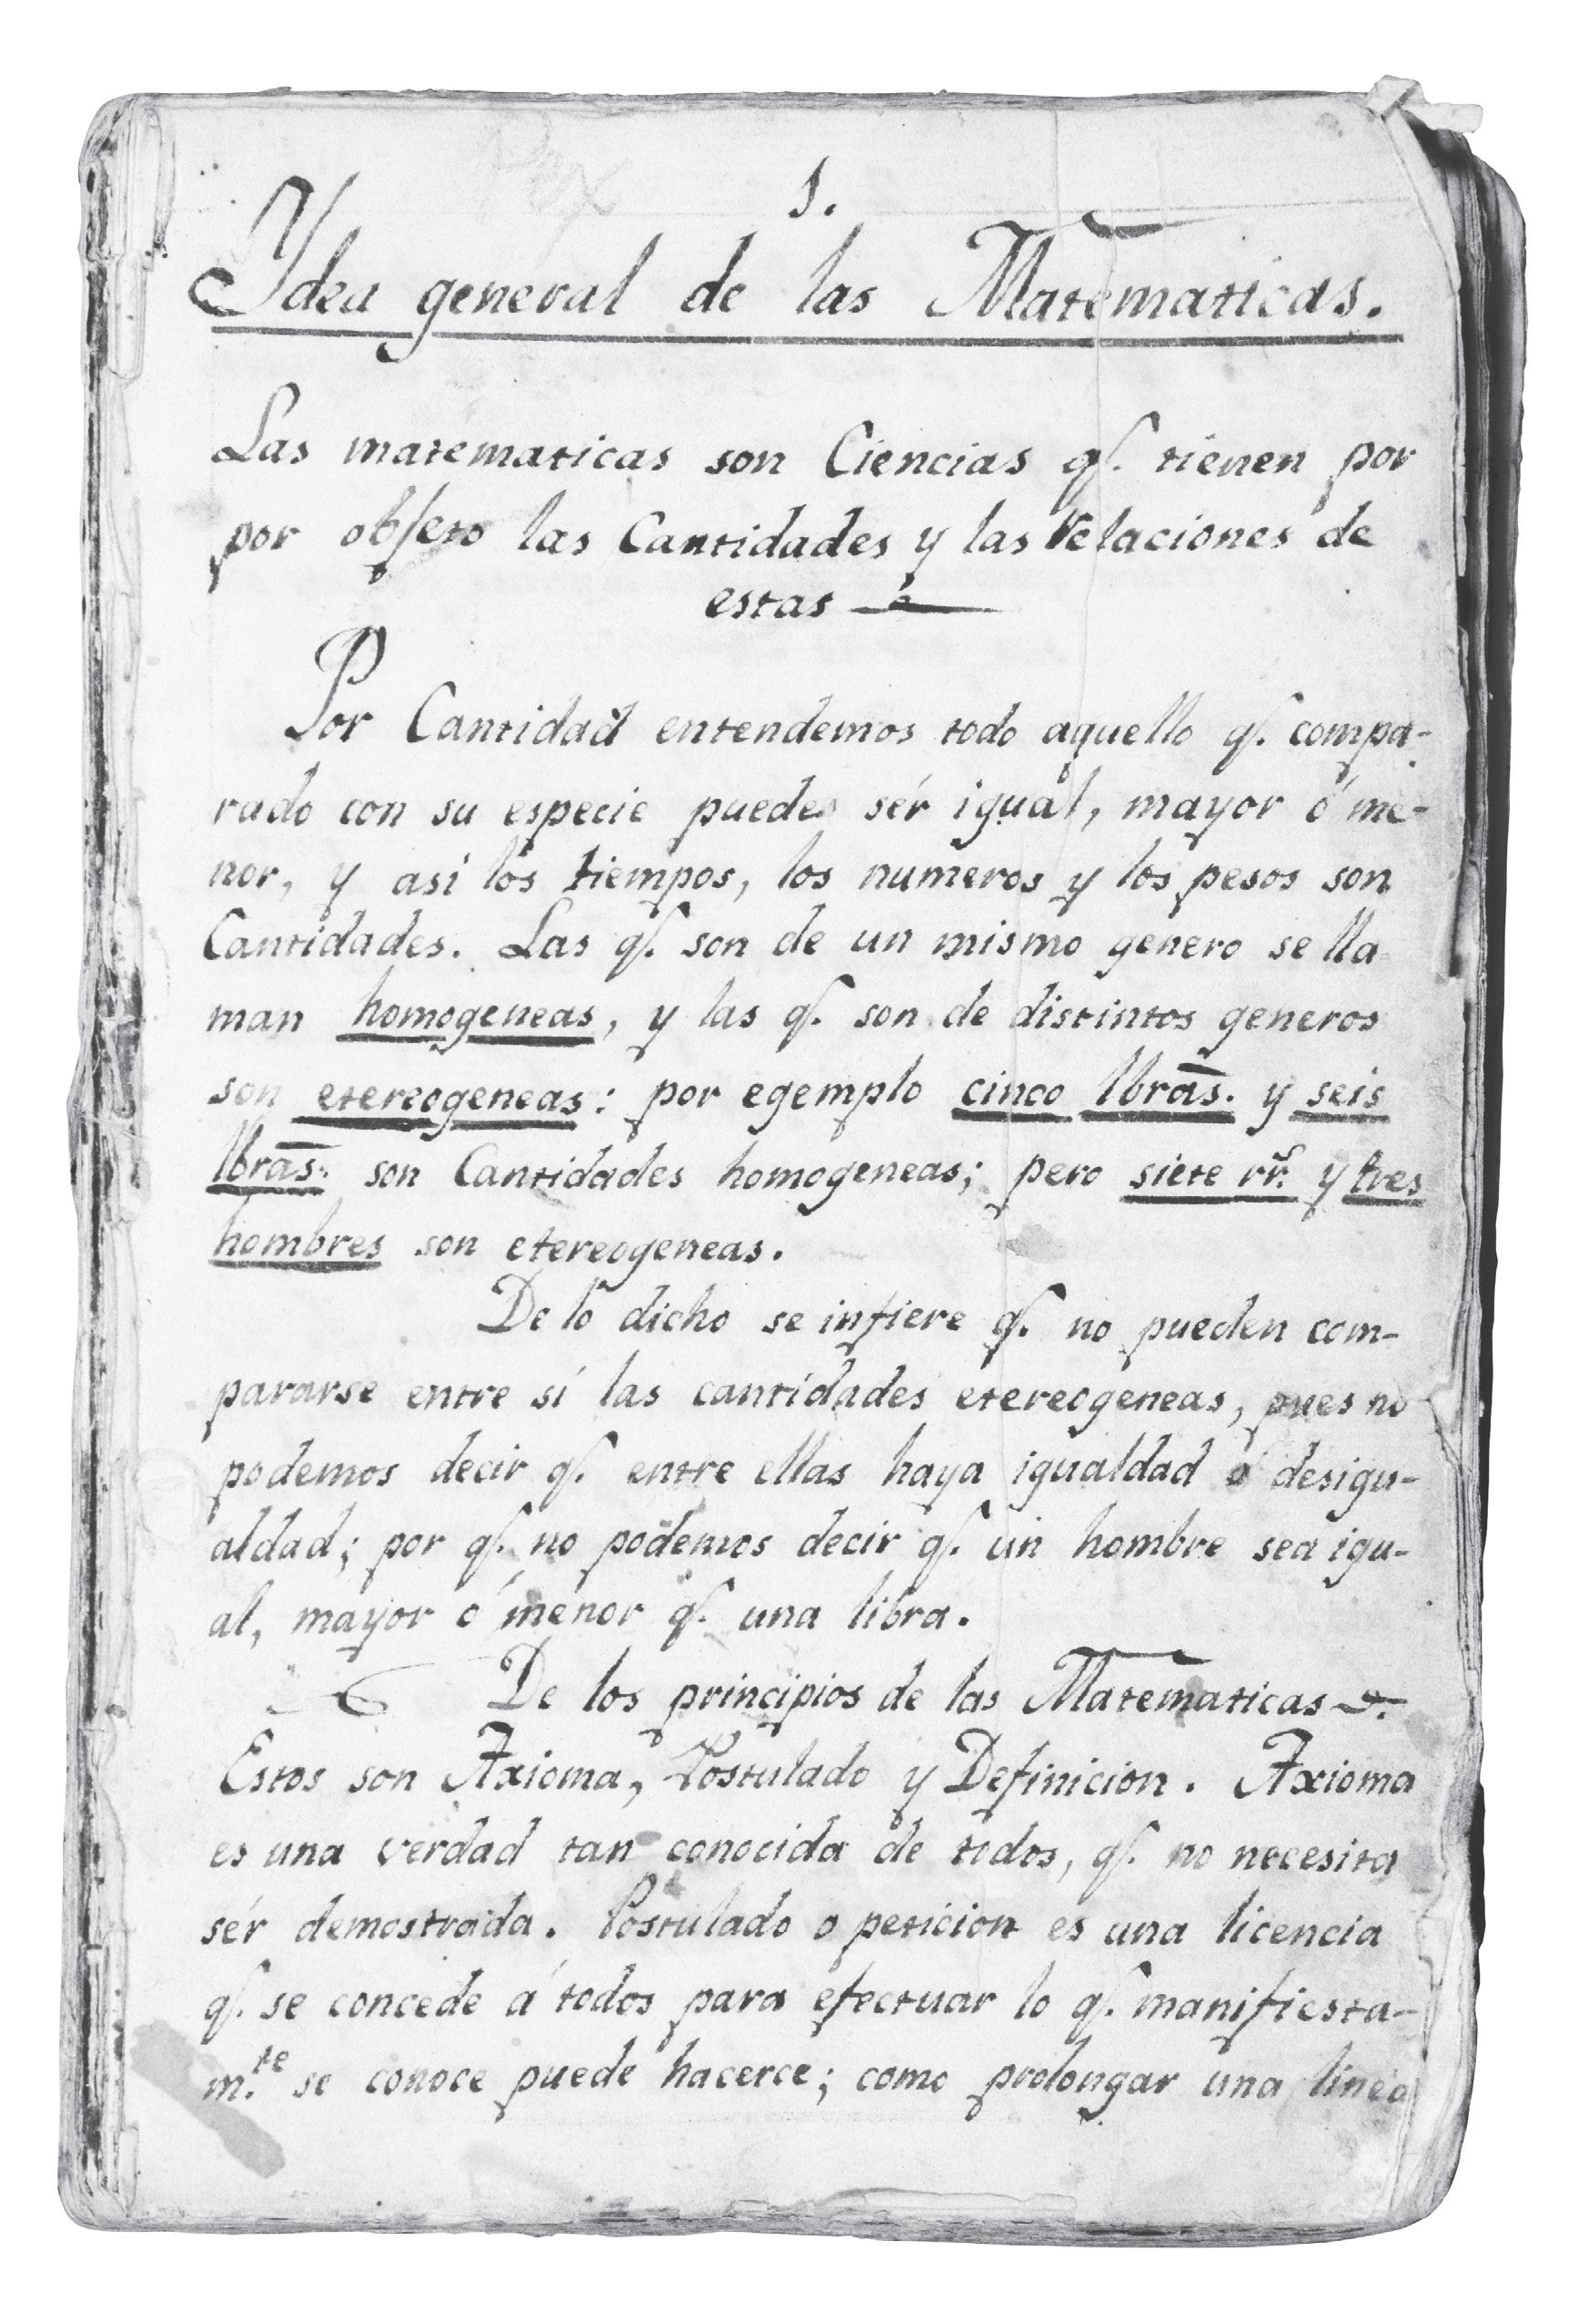 1.
Ydea general de las Matematicas.
Las matematicas son Ciencias q.e tienen por
por objeto las Cantidades y las relaciones de
estas
Por Cantidad entendemos todo aquello q.e compa-
rado con su especie puede sér igual, mayor ó me-
nor, y asi los tiempos, los numeros y los pesos son
Cantidades. Las q.e son de un mismo genero se lla
man homogeneas, y las q.e son de distintos generos
son etereogeneas: por egemplo cinco lbras. y seis
lbras. son Cantidades homogeneas; pero siete rr.s y tres
hombres son etereogeneas.
De lo dicho se infiere q.e no pueden com-
pararse entre sí las cantidades etereogeneas, pues no
podemos decir q.e entre ellas haya igualdad ó desigu-
aldad; por q.e no podemos decir q.e un hombre sea igu-
al, mayor ó menor q.e una libra.
De los principios de las Matematicas
Estos son Axioma, Postulado y Definicion. Axioma
es una verdad tan conocida de todos, q.e no necesita
sér demostrada. Postulado o peticion es una licencia
q.e se concede á todos para efectuar lo q.e manifiesta-
m.te se conoce puede hacerce; como prolongar una linea